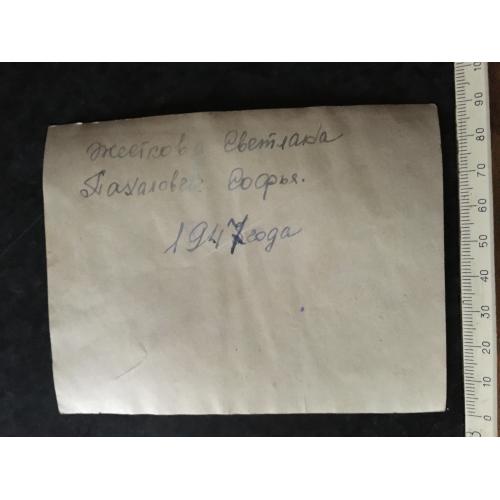 Жеткова Светлана
Пахаловск Софья.
1947 года
100
90
80
70
60
50
40
30
20
10
0